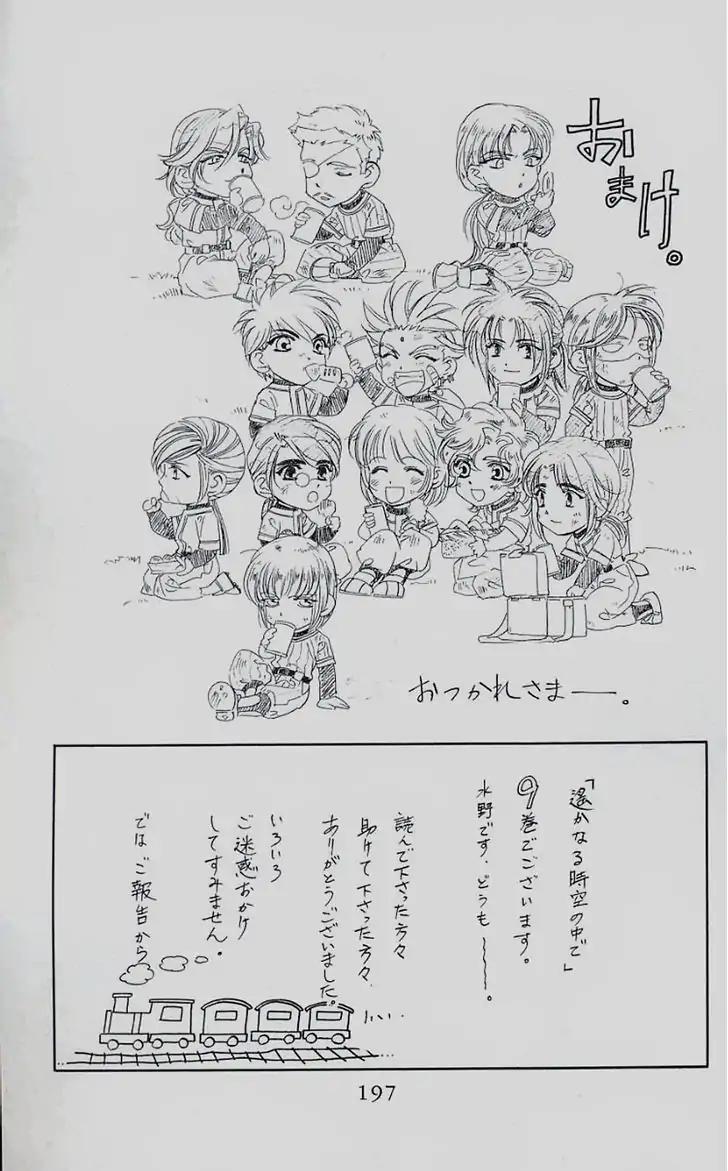 おまけ。
おつかれさまー。
「遙かなる時空の中で」
9巻でございます。
水野です．どうも〜〜。
読んで下さった方々
助けて下さった方々、
ありがとうございました。
いろいろ
ご迷惑おかけ
してすみません。
では ご報告から
197